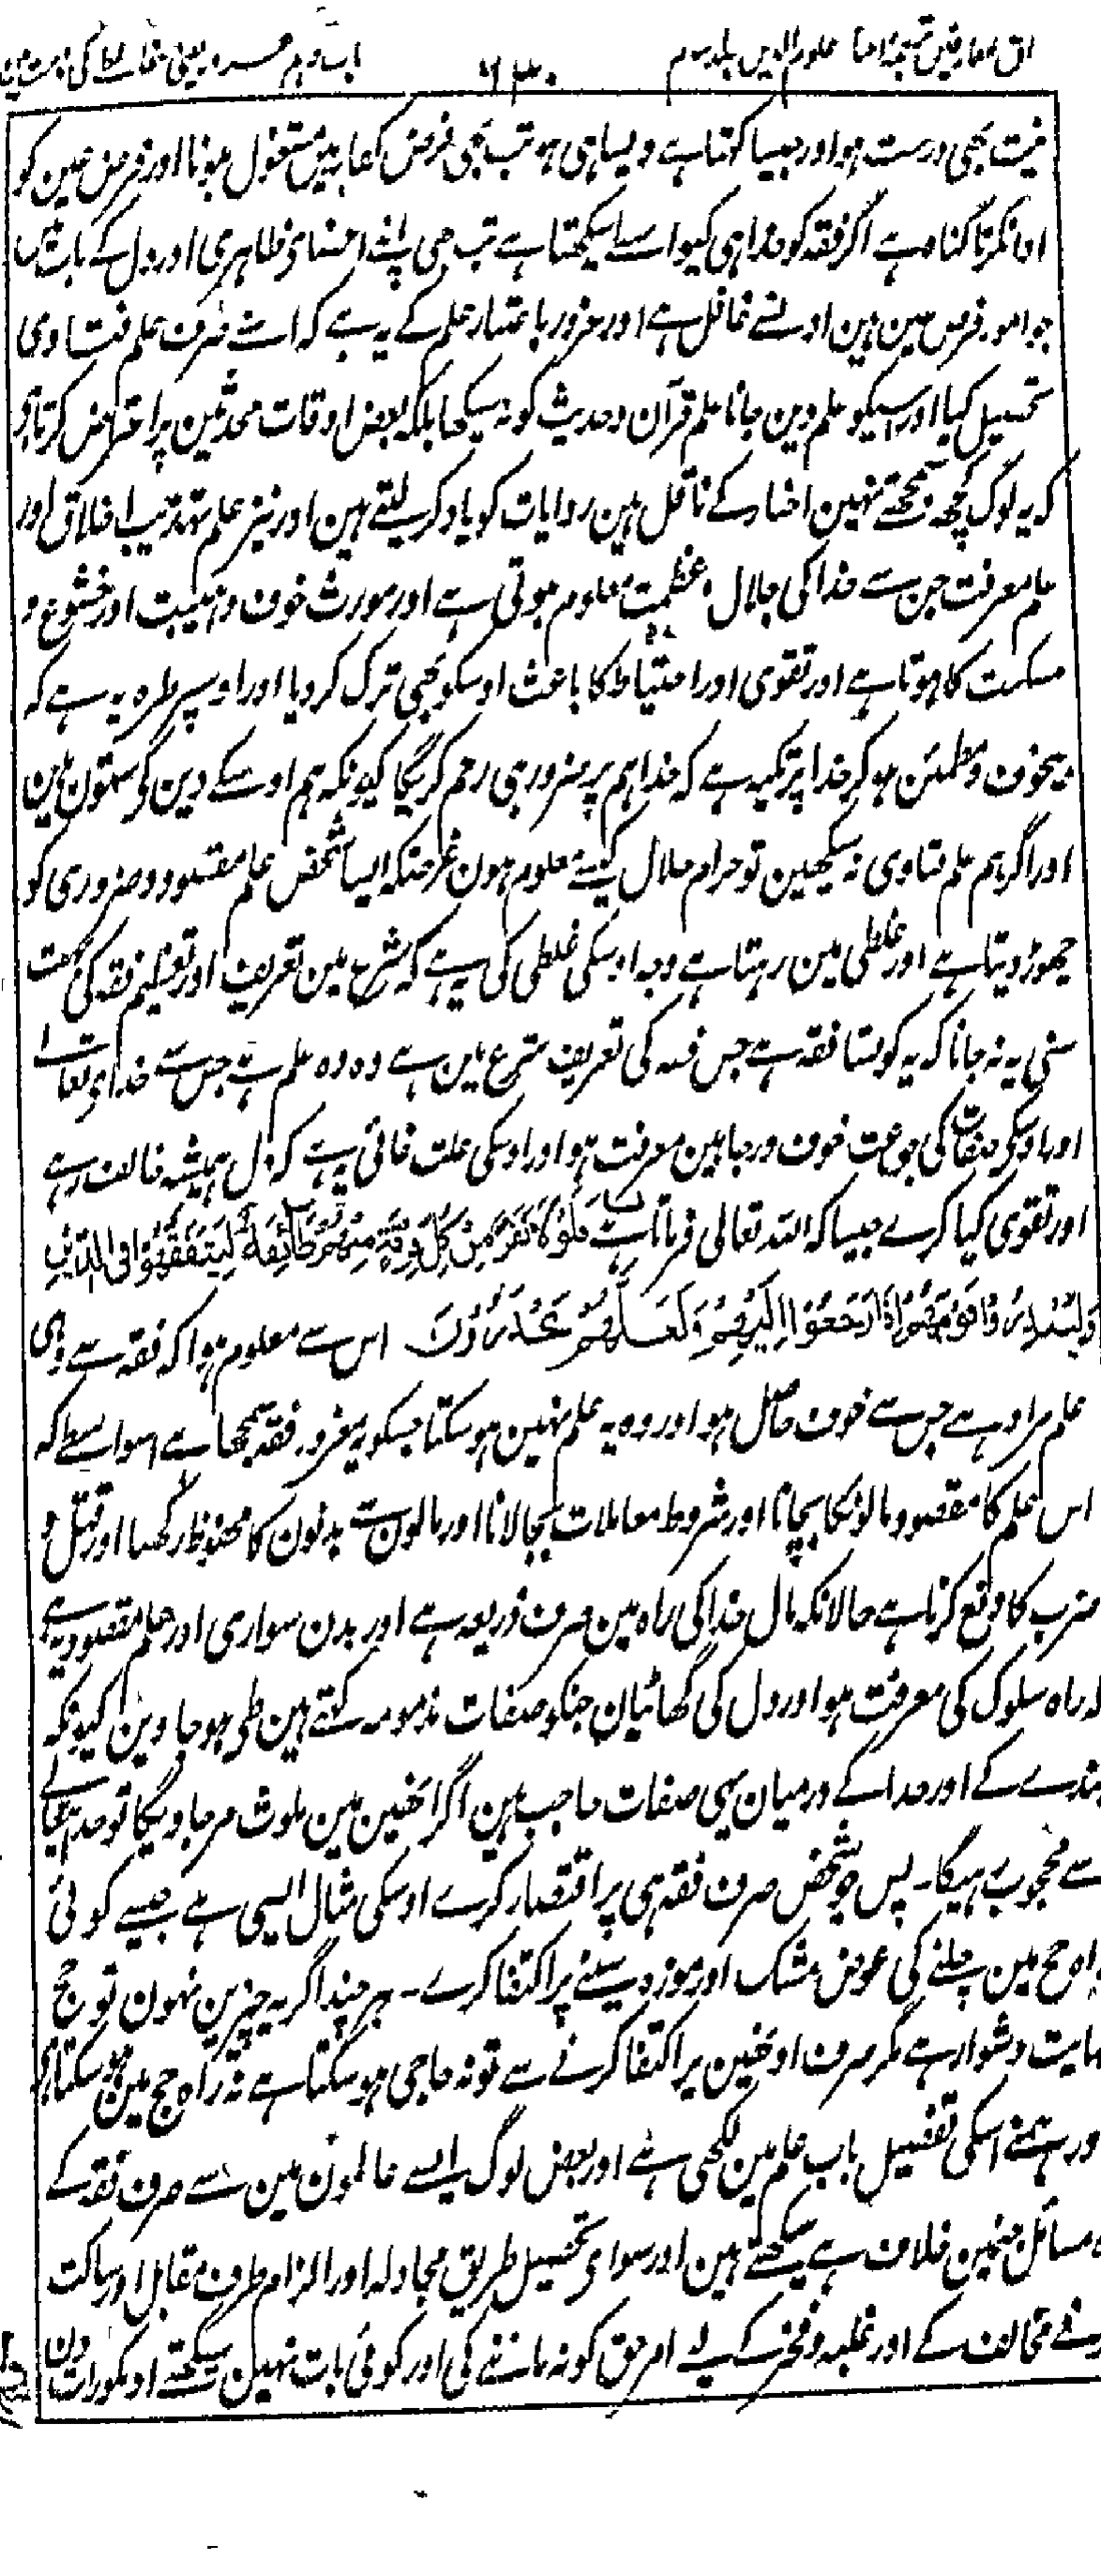 علوم الدین جلد سوم ۶۳۰ باب دہم
نیت بھی درست ہو اور جیسا کہتا ہے ویسا ہی ہو تب بھی فرض کفایہ میں مشغول ہونا اور فرض عین کو
ادا نکرنا گناہ ہے اگر فقہ کو خدا ہی کیواسطے سیکھتا ہے تب بھی اپنے اعضای ظاہری اور دل کے باب میں
جو امور فرض عین ہین اونسے غافل ہے اور غرور باعتبار علم کے یہ ہے کہ اسنے صرف علم فتاوی
تحصیل کیا اور اسیکو علم دین جانا علم قرآن و حدیث کو نہ سیکھا بلکہ بعض اوقات محدثین پر اعتراض کرتا ہے
کہ یہ لوگ کچھ سمجھتے نہین اخبار کے ناقل ہین روایات کو یاد کر لیتے ہین اور نیز علم تہذیب اخلاق اور
علم معرفت جن سے خدا کی جلال و عظمت معلوم ہوتی ہے اور مورث خوف و ہیبت اور خشوع و
مسکنت کا ہوتا ہے اور تقوی اور احتیاط کا باعث اوسکو بھی ترک کر دیا اور اوسپر طرہ یہ ہے کہ
بیخوف و مطمئن ہو کر خدا پر تکیہ ہے کہ خدا ہم پر ضرور ہی رحم کریگا کیونکہ ہم اوسکے دین کو ستون ہین
اور اگر ہم علم فتاوی نہ سیکھین تو حرام حلال کیسے معلوم ہون غرضکہ ایسا شخص علم مقصود و ضروری کو
چھوڑ دیتا ہے اور غلطی مین رہتا ہے وجہ اوسکی غلطی کی یہ ہے کہ شرع مین تعریف اور تعظیم فقہ کی بہت
سنی یہ نہ جانا کہ یہ کونسا فقہ ہے جس فقہ کی تعریف شرع مین ہے وہ وہ علم ہے جس سے خدای تعالے
اور اوسکی صفات کی جو باعث خوف و رجا ہین معرفت ہو اور اوسکی علت غائی یہ ہے کہ دل ہمیشہ خائف رہے
اور تقوی کیا کرے جیسا کہ اللہ تعالی فرماتا ہے فَلَوْلَا نَفَرَ مِنْ كُلِّ فِرْقَةٍ مِنْهُمْ طَائِفَةٌ لِيَتَفَقَّهُوْا فِى الدِّيْنِ
وَلِيُنْذِرُوْا قَوْمَهُمْ اِذَا رَجَعُوْا اِلَيْهِمْ لَعَلَّهُمْ يَحْذَرُوْنَ اس سے معلوم ہوا کہ فقہ سے وہی
علم مراد ہے جس سے خوف حاصل ہو اور وہ یہ علم نہین ہو سکتا جسکو یہ مغرور فقہ سمجھا ہے اسواسطے کہ
اس علم کا مقصود مالونکا بچانا اور شروط معاملات بجا لانا اور مالون سے بدنون کا محفوظ رکھنا اور قتل و
ضرب کا دفع کرنا ہے حالانکہ مال خدا کی راہ مین صرف ذریعہ ہے اور بدن سواری اور علم مقصود یہ ہے
کہ راہ سلوک کی معرفت ہو اور دل کی گھاٹیان جنکو صفات مذمومہ کہتے ہین طی ہو جاوین کیونکہ
بندے کے اور خدا کے درمیان یہی صفات حاجب ہین اگر انھین مین ملوث مر جاویگا تو خدا تعالے
سے محجوب رہیگا۔ پس جو شخص صرف فقہ ہی پر اقتصار کرے اوسکی مثال ایسی ہے جیسے کوئی
راہ حج مین چلنے کی عوض مشک اور موزہ سینے پر اکتفا کرے۔ ہر چند اگر یہ چیزین نہون تو حج
نہایت دشوار ہے مگر صرف اونھین پر اکتفا کرنے سے تو نہ حاجی ہو سکتا ہے نہ راہ حج مین ہو سکتا ہے
اور ہمنے اسکی تفصیل باب علم مین لکھی ہے اور بعض لوگ ایسے عالمون مین سے صرف فقہ کے
وہ مسائل جنمین خلاف ہے سیکھتے ہین اور سوای تحصیل طریق مجادلہ اور الزام طرف مقابل اور ساکت
کرنے مخالف کے اور غلبہ و فخر کے لیے امر حق کو نہ ماننے کی اور کوئی بات نہین سیکھتے اونکو رات دن